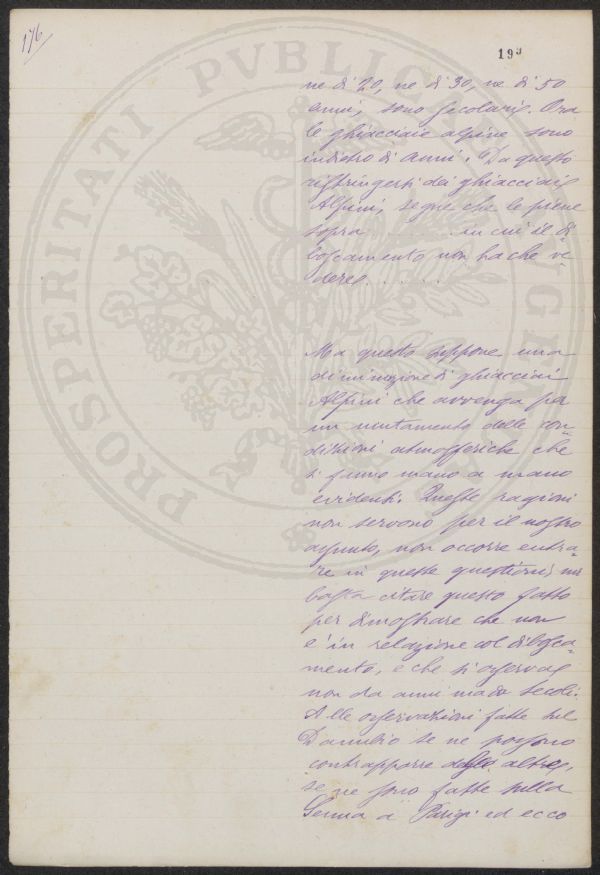 176
193
PROSPERITATI PVBLICAE AVGENDAE
ne di 20, ne di 30, ne di 50
anni, sono secolari. Ora
le ghiacciaie alpine sono
indietro di anni. Da questo
restringersi dei ghiacciai
Alpini, segue che le piene
sopra ........ in cui il di
boscamento non ha che ve-
dere. . . . . .
Ma questo suppone una
diminuzione di ghiacciai
Alpini che avvenga per
un mutamento delle con-
dizioni atmosferiche che
si fanno mano a mano
evidenti. Queste ragioni
non servono per il nostro
assunto, non occorre entra-
re in queste questioni, mi
basta citare questo fatto
per dimostrare che non
è in relazione col disbosca-
mento, e che si osserva
non da anni ma da secoli.
Alle osservazioni fatte sul
Danubio se ne possono
contrapporre delle altre,
se ne sono fatte sulla
Senna a Parigi ed ecco